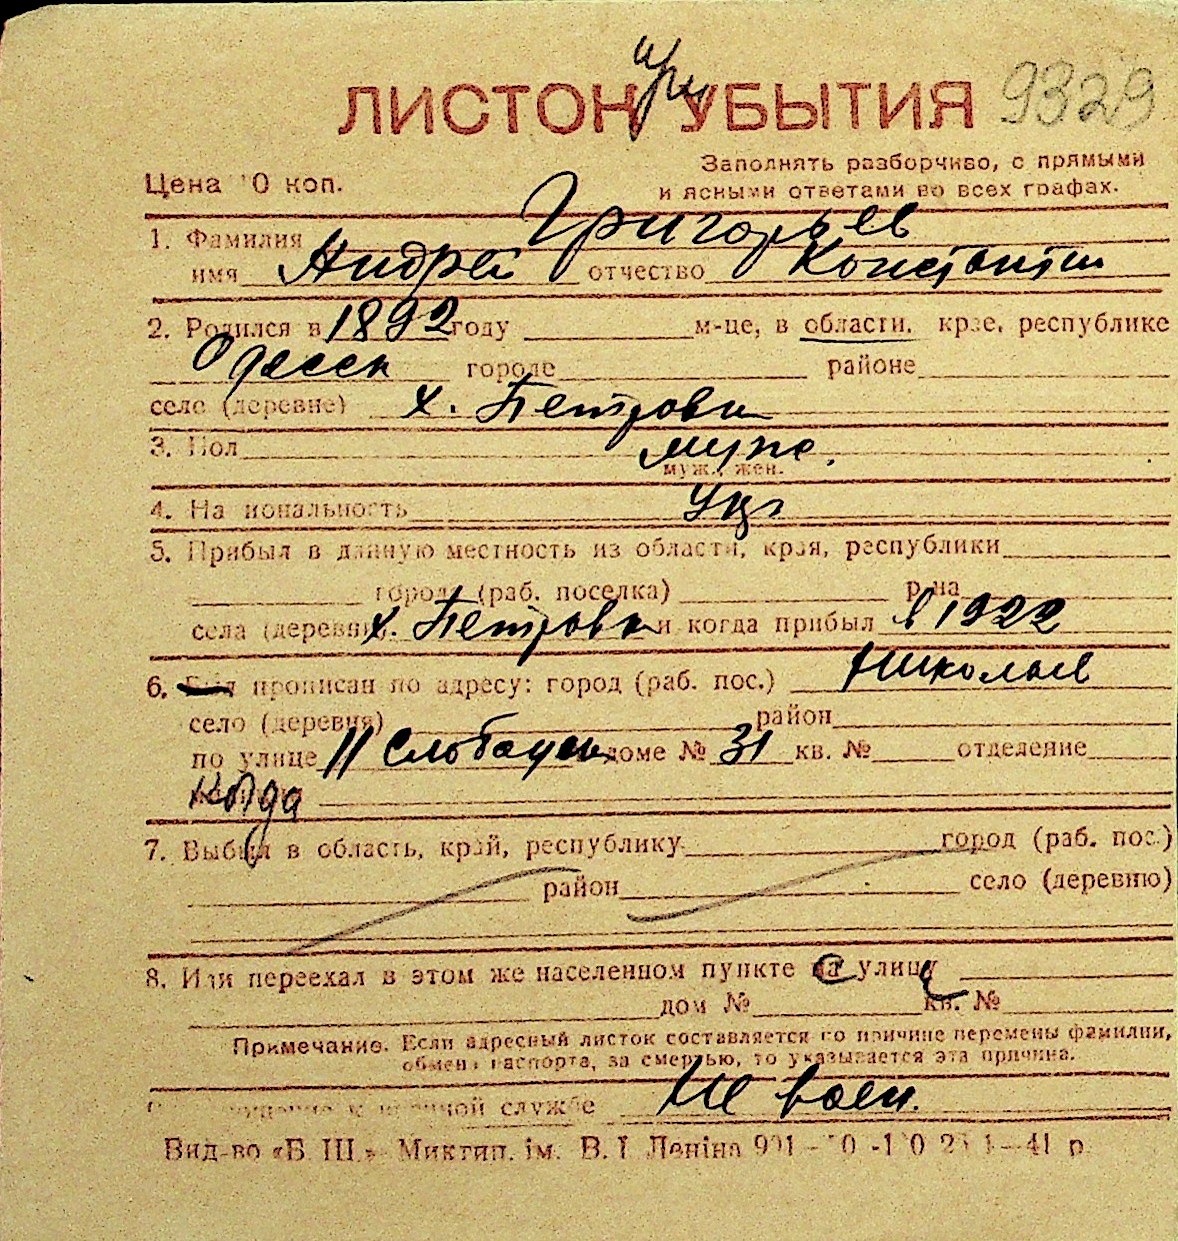 ЛИСТОК УБЫТИЯ 9329
при
Заполнять разборчиво, с прямыми
Цена 10 коп. и ясными ответами во всех графах.
1. Фамилия Григорьев
имя Андрей отчество Константин
2. Родился в 1892 году м-це, в области, крае, республике
Одесск городе районе
село (деревне) х. Петровка
3. Пол муж.
муж., жен.
4. Национальность Укр
5. Прибыл в данную местность из области, края, республики
города (раб. поселка) р-на
села (деревни) х. Петровк и когда прибыл в 1922
6. Был прописан по адресу: город (раб. пос.) Николаев
село (деревня) район
по улице II Слободск доме № 31 кв. № отделение
Когда
7. Выбыл в область, край, республику город (раб. пос.)
район село (деревню)
8. Или переехал в этом же населенном пункте с улицы
дом № кв. №
Примечание. Если адресный листок составляется по причине перемены фамилии,
обмена паспорта, за смертью, то указывается эта причина.
службе Не воен.
Вид-во «Б. Ш.» Миктип. ім. В. І. Леніна 41 р.